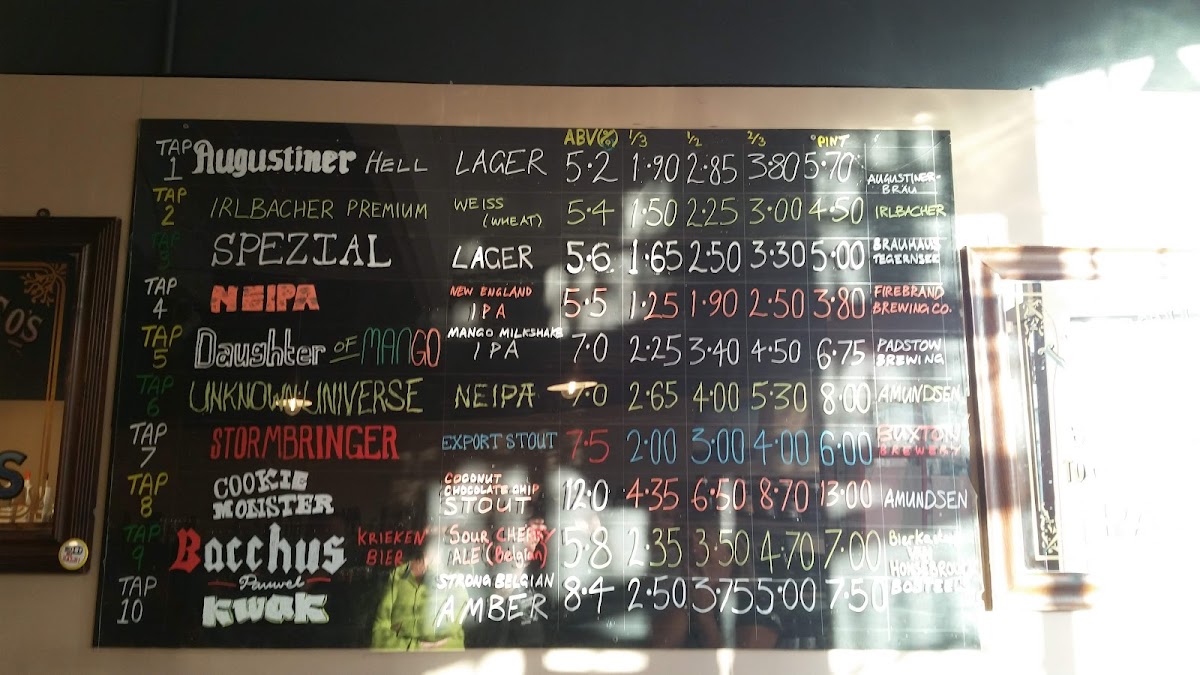 ABV(%) 1/3 1/2 2/3 PINT
TAP 1 Augustiner HELL LAGER 5.2 1.90 2.85 3.80 5.70 AUGUSTINER-
BRÄU
TAP 2 IRLBACHER PREMIUM WEISS (WHEAT) 5.4 1.50 2.25 3.00 4.50 IRLBACHER
TAP 3 SPEZIAL LAGER 5.6 1.65 2.50 3.30 5.00 BRAUHAUS
TEGERNSEE
TAP 4 NEIPA NEW ENGLAND IPA 5.5 1.25 1.90 2.50 3.80 FIREBRAND
BREWING CO.
TAP 5 Daughter OF MANGO MANGO MILKSHAKE IPA 7.0 2.25 3.40 4.50 6.75 PADSTOW
BREWING
TAP 6 UNKNOWN UNIVERSE NEIPA 7.0 2.65 4.00 5.30 8.00 AMUNDSEN
TAP 7 STORMBRINGER EXPORT STOUT 7.5 2.00 3.00 4.00 6.00 BUXTON
BREWERY
TAP 8 COOKIE MONSTER COCONUT CHOCOLATE CHIP STOUT 12.0 4.35 6.50 8.70 13.00 AMUNDSEN
TAP 9 Bacchus KRIEKEN BIER SOUR CHERRY ALE (Belgian) 5.8 2.35 3.50 4.70 7.00
VAN
HONSEBROUCK
TAP 10 Pauwel KWAK STRONG BELGIAN AMBER 8.4 2.50 3.75 5.00 7.50 BOSTEELS